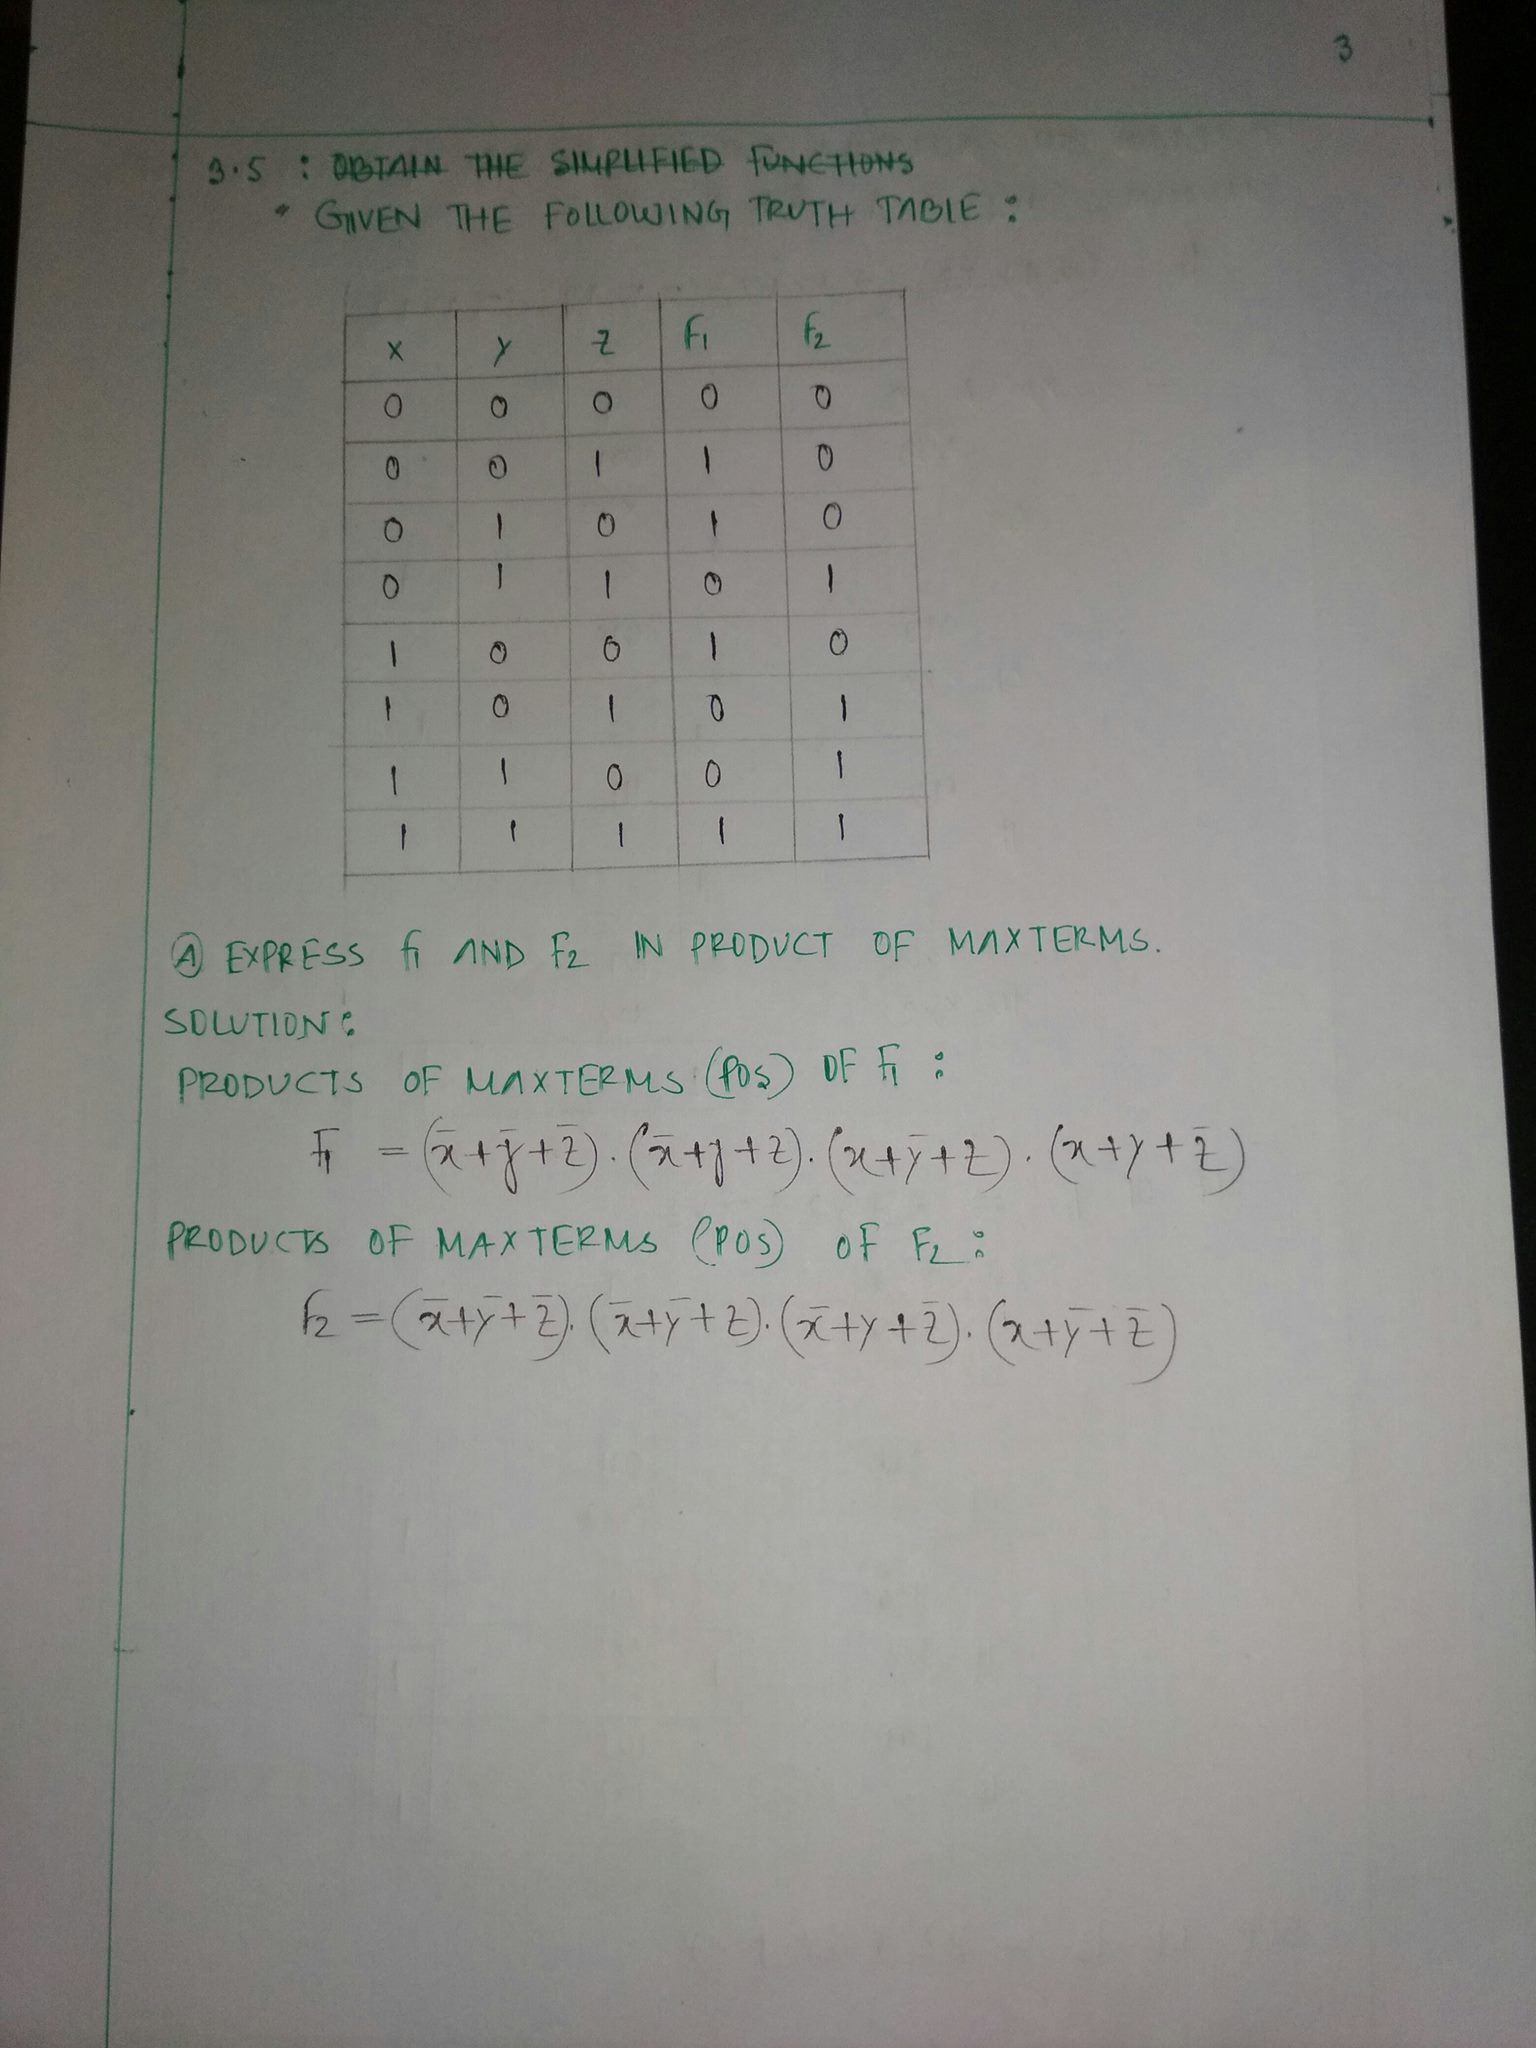 3
3.5 : OBTAIN THE SIMPLIFIED FUNCTIONS
* GIVEN THE FOLLOWING TRUTH TABLE :
X Y Z F1 F2
0 0 0 0 0
0 0 1 1 0
0 1 0 1 0
0 1 1 0 1
1 0 0 1 0
1 0 1 0 1
1 1 0 0 1
1 1 1 1 1
Ⓐ EXPRESS F1 AND F2 IN PRODUCT OF MAXTERMS.
SOLUTION :
PRODUCTS OF MAXTERMS (POS) OF F1 :
F1 = (x̄+ȳ+z̄).(x̄+y+z).(x+ȳ+z).(x+y+z̄)
PRODUCTS OF MAXTERMS (POS) OF F2 :
F2 = (x̄+ȳ+z̄).(x̄+ȳ+z).(x̄+y+z̄).(x+ȳ+z̄)